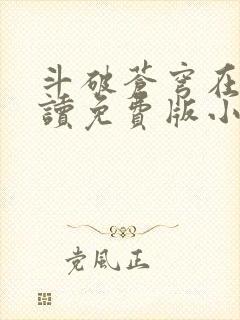 斗破苍穹在
讀免費版小
党風正